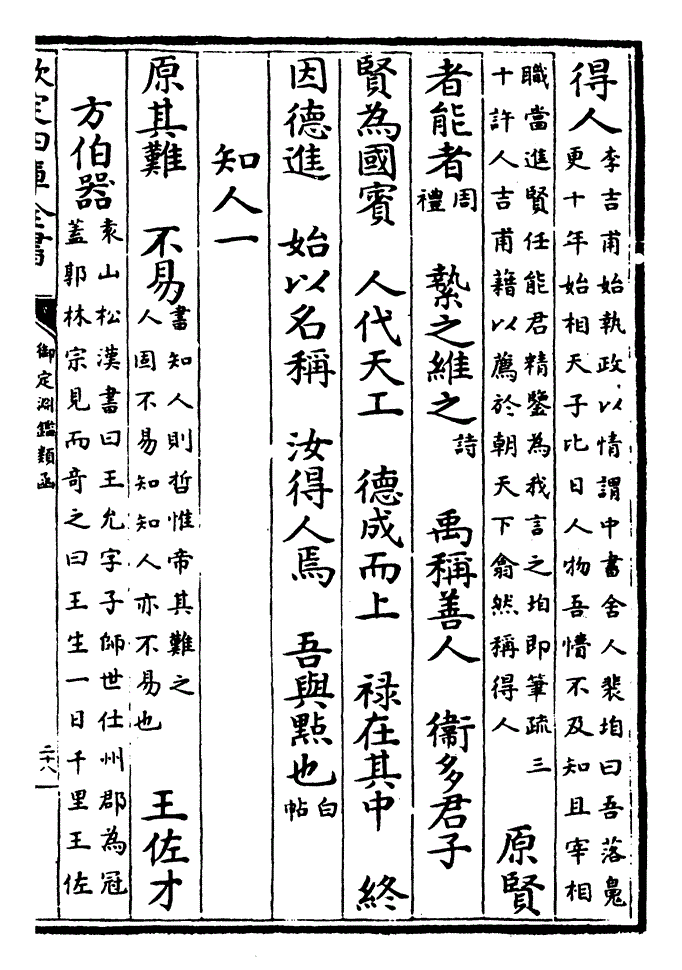 得人李吉甫始執政以情謂中書舍人裴垍曰吾落
更十年始相天子比日人物吾懵不及知且宰相
職當進賢任能君精鑒為我言之垍即筆疏三
十許人吉甫籍以薦於朝天下翕然稱得人 原賢
者能者周禮 縶之維之詩 禹稱善人 衞多君子
賢為國賓 人代天工 德成而上 禄在其中 終
因德進 始以名稱 汝得人焉 吾與點也白帖
知人一
原其難 不易書知人則哲惟帝其難之
人固不易知知人亦不易也 王佐才
方伯器袁山松漢書曰王允字子師世仕州郡為冠
蓋郭林宗見而竒之曰王生一日千里王佐
欽定四庫全書 御定淵鑑類函 二十八